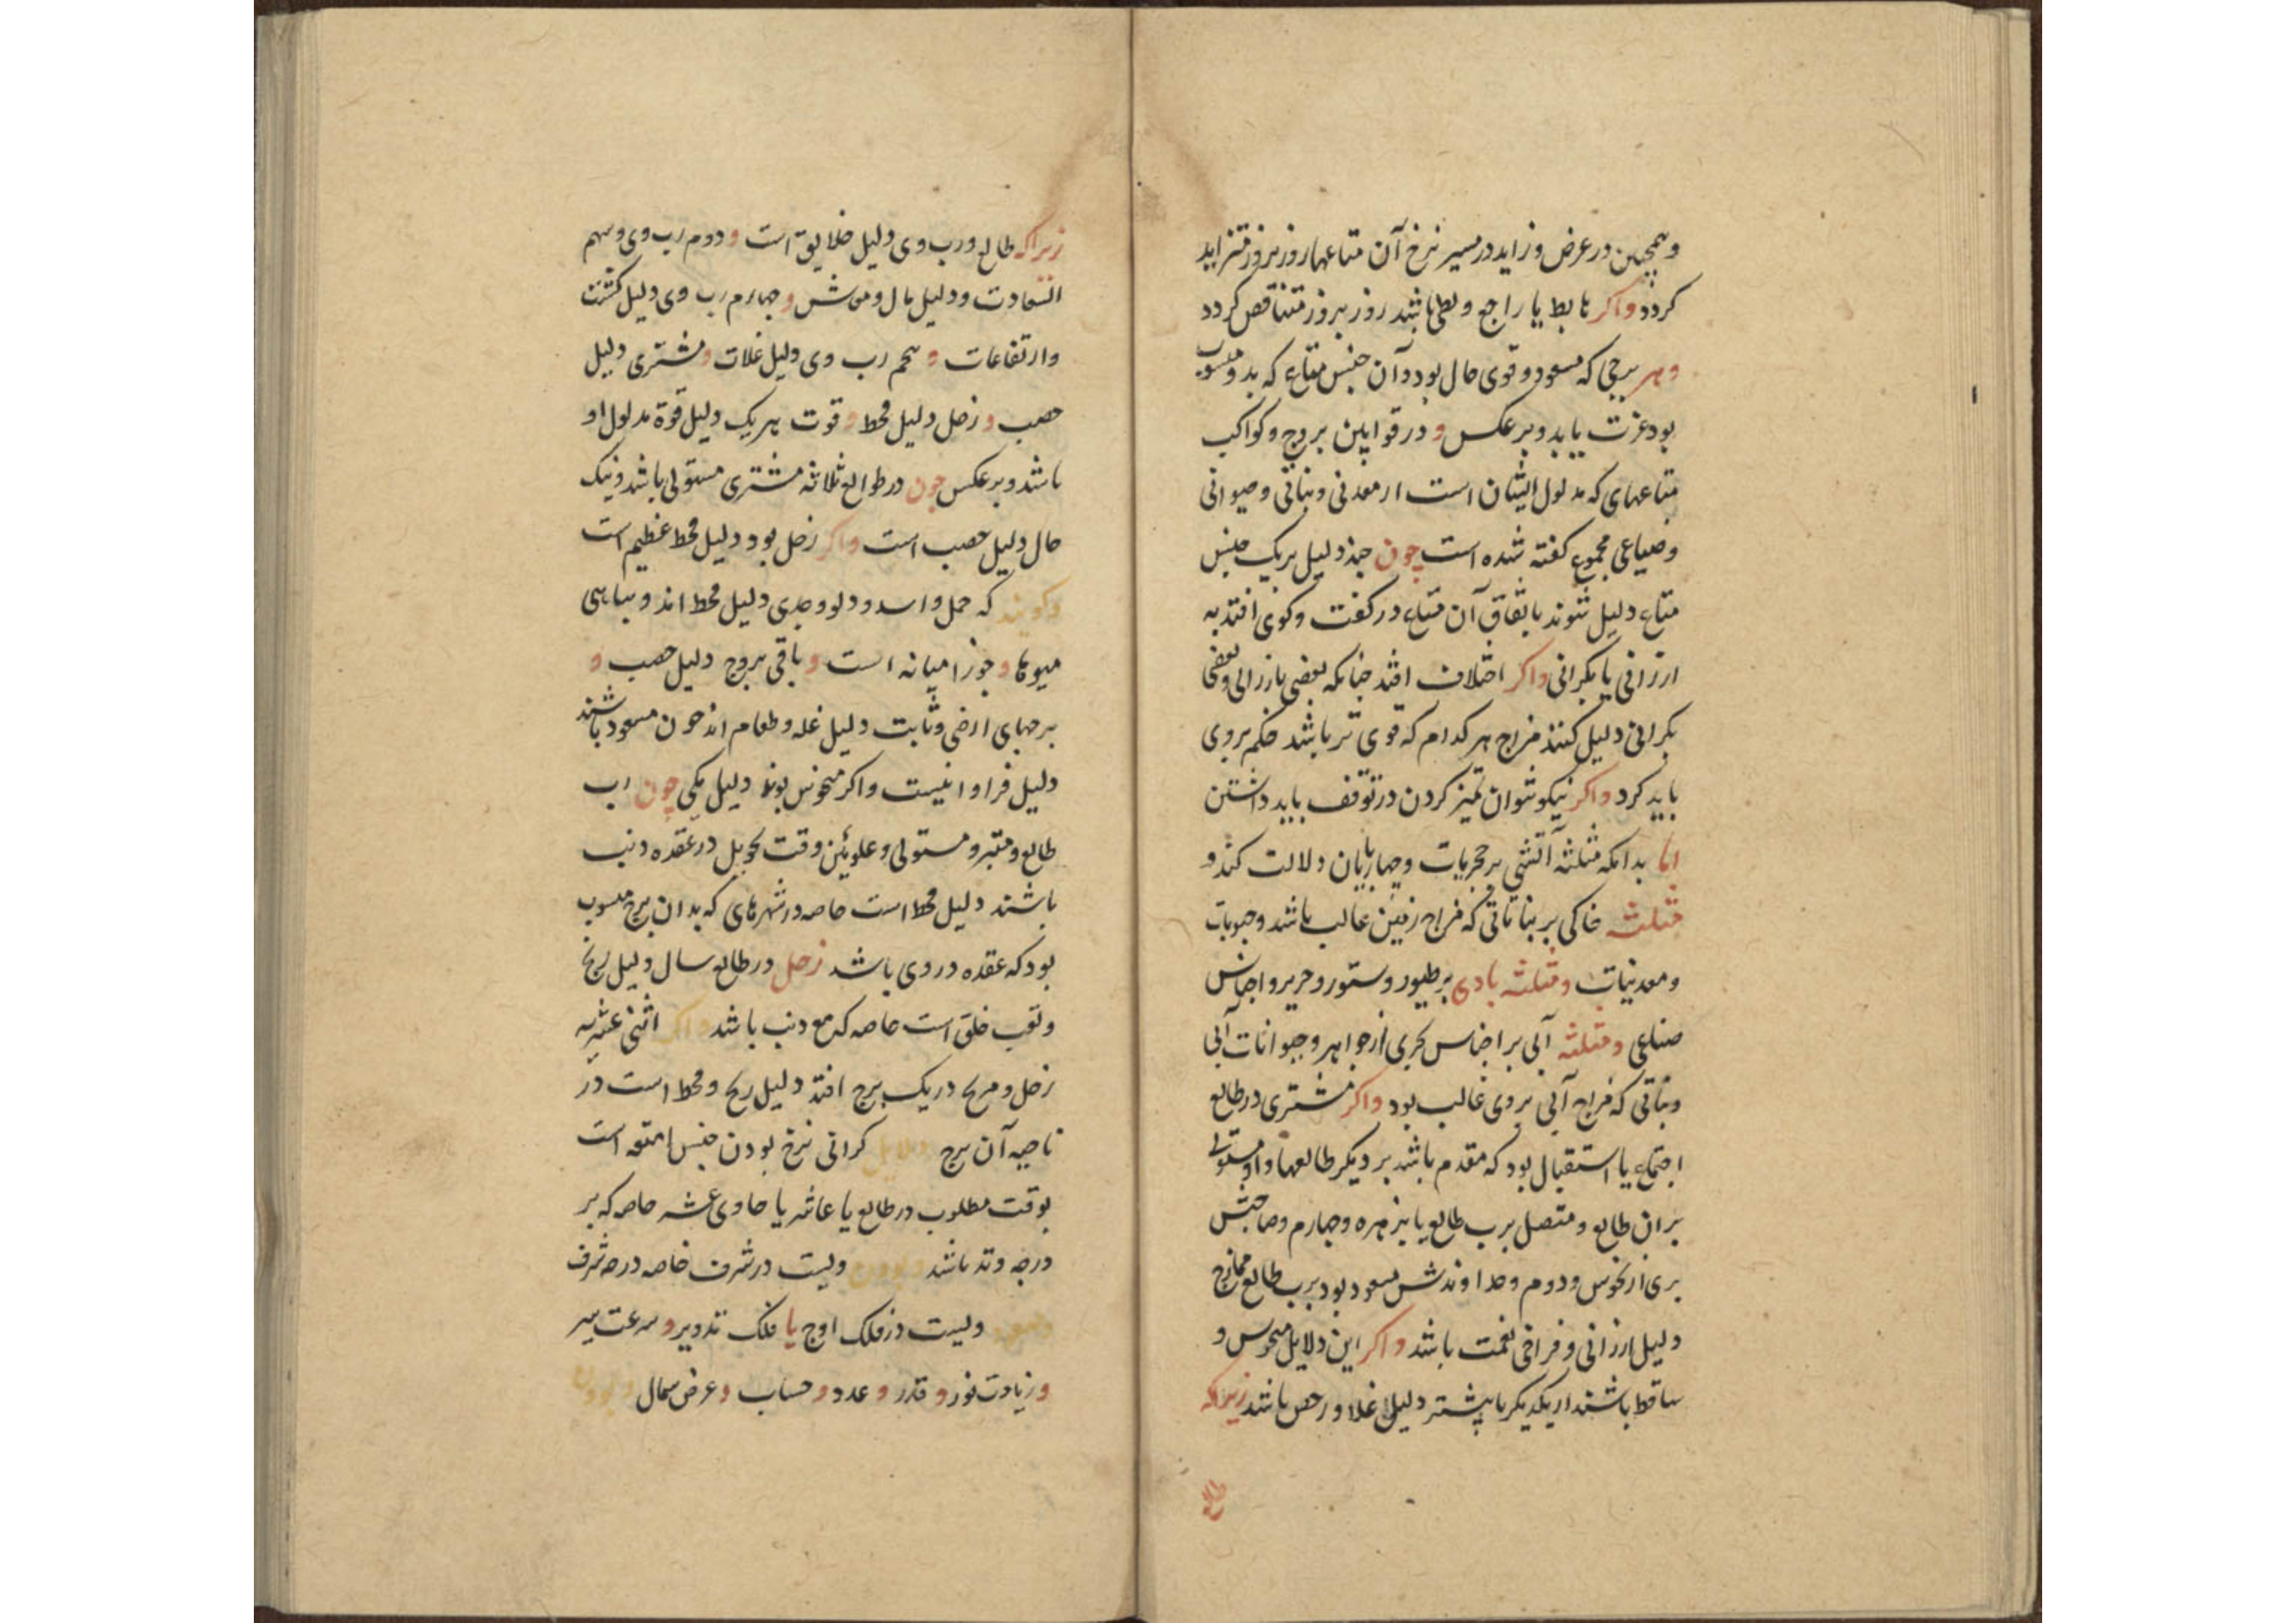 وهمچنین در عرض و زاید در مسیر نرخ آن متاعها روز بروز متزاید
کردد واکر هابط یا راجع و بطی باشد روز بروز متناقص کردد
وهر برجی که مسعود و قوی حال بود و آن جنس متاع که بدو منسوب
بود عزت یابد و برعکس و در قوانین بروج و کواکب
متاعهای که مدلول ایشان است از معدنی و نباتی و حیوانی
و صناعی مجموع کفته شده است چون چند دلیل بر یک جنس
متاع دلیل شوند باتفاق آن متاع در کفت و کوی افتد به
ارزانی یا بکرانی واکر اختلاف افتد چنانکه بعضی بارزانی و بعضی
بکرانی دلیل کنند مزاج هر کدام که قوی تر باشد حکم بروی
باید کرد واکر نیکو نتوان تمیز کردن در توقف باید داشتن
اما بدانکه مثلثه آتشی بر حجریات و چهارپایان دلالت کند و
مثلثه خاکی بر نباتاتی که مزاج زمین غالب باشد و حبوبات
و معدنیات ومثلثه بادی بر طیور و ستور و حریر و اجناس
صناعی ومثلثه آبی بر اجناس بحری از جواهر و حیوانات آبی
و نباتی که مزاج آبی بروی غالب بود واکر مشتری در طالع
اجتماع یا استقبال بود که مقدم باشد بر دیکر طالعها و او مستولی
بر آن طالع و متصل برب طالع یا بزهره و چهارم و صاحبش
بری از نحوس و دوم و خداوندش مسعود بود برب طالع ممازج
دلیل ارزانی و فراخی نعمت باشد واکر این دلایل منحوس و
ساقط باشند از یکدیکر یا بیشتر دلیل غلا و رخص باشد زیراکه
زیراکه طالع و رب وی دلیل خلایق است و دوم رب وی و سهم
السعادت و دلیل مال و معاش و چهارم رب وی دلیل کشت
و ارتفاعات و پنجم رب وی دلیل غلات و مشتری دلیل
خصب و زحل دلیل قحط و قوت هر یک دلیل قوة مدلول او
باشد و برعکس چون در طوالع ثلاثه مشتری مستولی باشد و نیک
حال دلیل خصب است واکر زحل بود دلیل قحط عظیم است
وکویند که حمل و اسد و دلو و جدی دلیل قحط اند و تباهی
میوها و جوزا میانه است و باقی بروج دلیل خصب و
برجهای ارضی و ثابت دلیل غله و طعام اند چون مسعود باشند
دلیل فراوانیست واکر منحوس بوند دلیل کمی چون رب
طالع و مبتز و مستولی و علویین وقت تحویل در عقده ذنب
باشند دلیل قحط است خاصه در شهرهای که بدان برج منسوب
بود که عقده در وی باشد زحل در طالع سال دلیل رنج
و تعب خلق است خاصه که مع ذنب باشد واکر اثنی عشریه
زحل و مریخ در یک برج افتد دلیل رنج و قحط است در
ناحیه آن برج دلایل کرانی نرخ بودن جنس امتعه است
بوقت مطلوب در طالع یا عاشر یا حادی عشر خاصه که بر
درجه وتد باشد وبودن ویست در شرف خاصه درجه شرف
ویست در فلک اوج یا فلک تدویر و سرعت سیر
و زیادت نور و قدر و عدد و حساب و عرض شمال وبودن